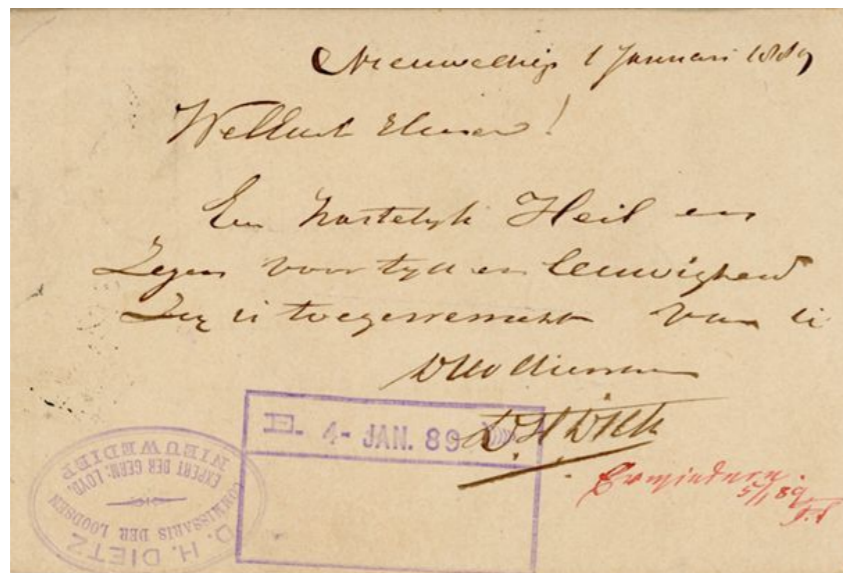 Nieuwediep 1 Januari 1889
WelEd. Heer!
Een hartelijk Heil en
Zegen voor tijd en eeuwigheid
Zij U toegewenscht van U
D H Dietz
E. 4- JAN. 89
D. H. DIETZ
COMMISSARIS DER LOODSEN
EXPERT DER GERM: LOYD
NIEUWEDIEP
5/1 89